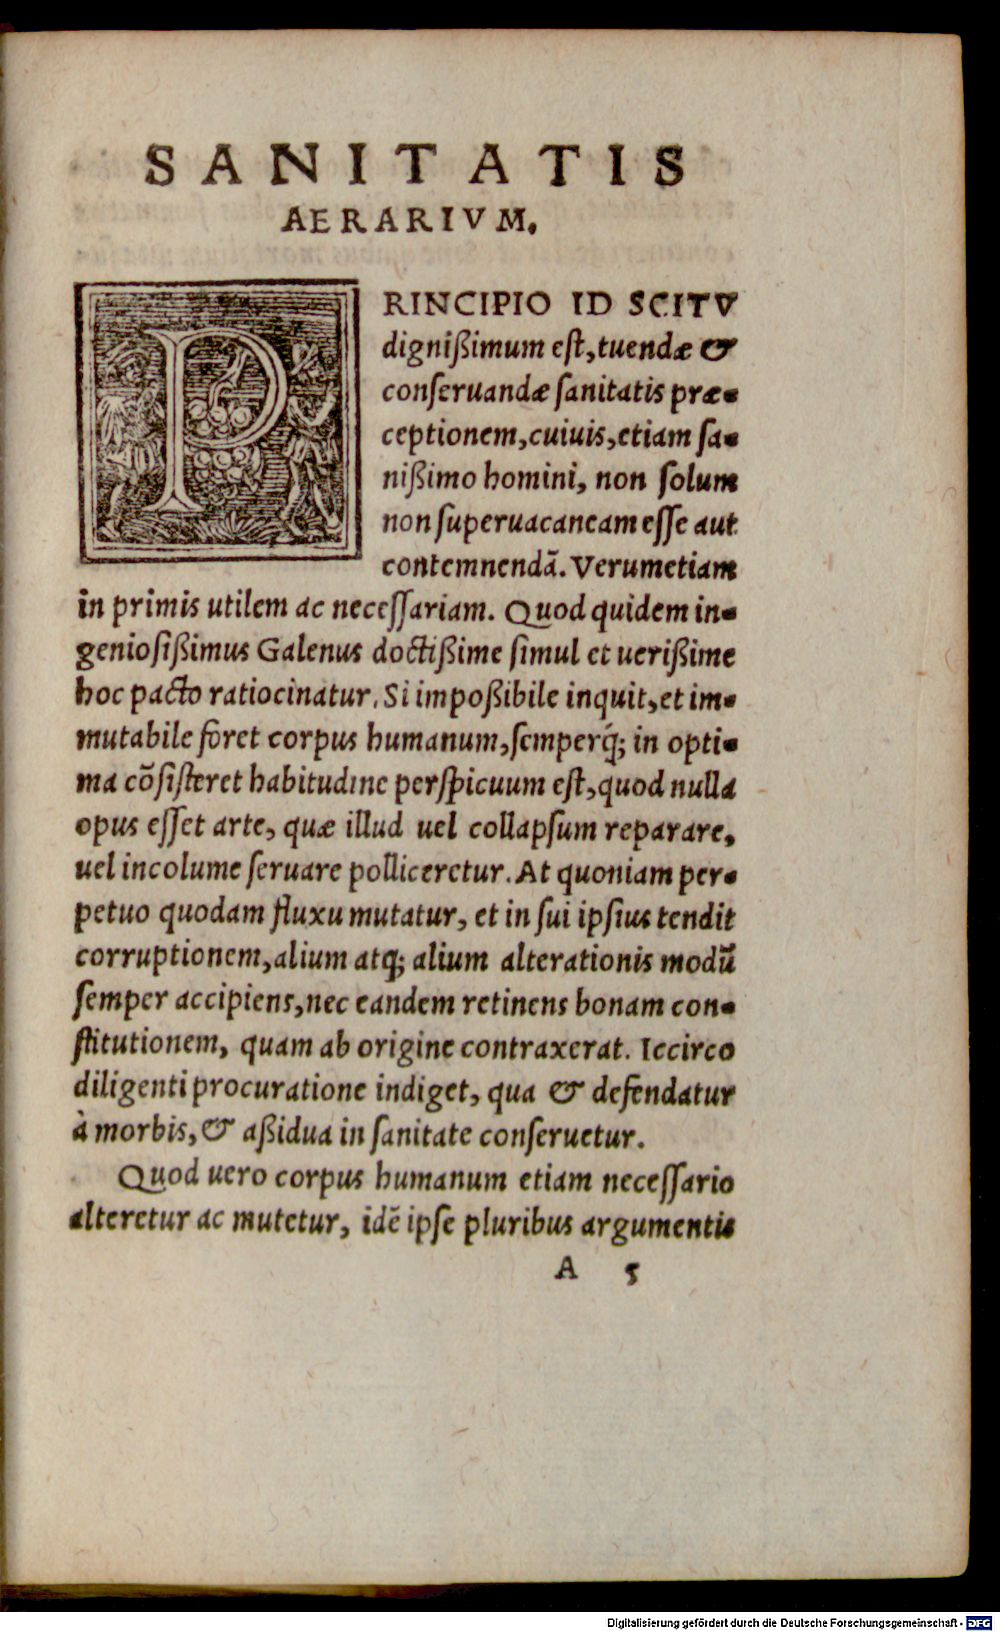 SANITATIS
AERARIVM.
PRINCIPIO ID SCITV
digniſſimum eſt, tuendæ &
conſeruandæ ſanitatis præ-
ceptionem, cuiuis, etiam ſa-
niſſimo homini, non ſolum
non ſuperuacaneam eſſe aut
contemnendã. Verumetiam
in primis utilem ac neceſſariam. Quod quidem in-
genioſißimus Galenus doctißime ſimul et uerißime
hoc pacto ratiocinatur. Si impoßibile inquit, et im-
mutabile foret corpus humanum, ſemperq́; in opti-
ma cõſiſteret habitudine perſpicuum eſt, quod nulla
opus eſſet arte, quæ illud uel collapſum reparare,
uel incolume ſeruare polliceretur. At quoniam per-
petuo quodam fluxu mutatur, et in ſui ipſius tendit
corruptionem, alium atq; alium alterationis modũ
ſemper accipiens, nec eandem retinens bonam con-
ſtitutionem, quam ab origine contraxerat. Iccirco
diligenti procuratione indiget, qua & defendatur
à morbis, & aßidua in ſanitate conſeruetur.
Quod uero corpus humanum etiam neceſſario
alteretur ac mutetur, idẽ ipſe pluribus argumentis
A 5
Digitalisierung gefördert durch die Deutsche Forschungsgemeinschaft - DFG